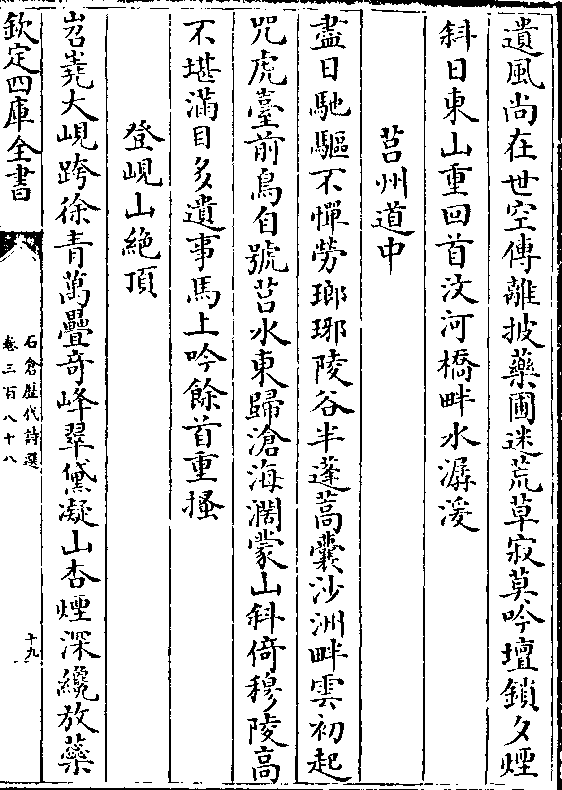 遺風尚在世空傳離披藥圃迷荒草寂莫吟壇鎖夕煙
斜日東山重回首汶河橋畔水潺湲
莒州道中
盡日馳驅不憚勞瑯琊陵谷半蓬蒿囊沙洲畔雲初起
咒虎臺前鳥自號莒水東歸滄海濶蒙山斜倚穆陵高
不堪滿目多遺事馬上吟餘首重搔
登峴山絶頂
岧嶤大峴跨徐青萬疊奇峰翠黛凝山杏煙深纔放藥
欽定四庫全書
石倉歷代詩選
卷三百八十八
十九